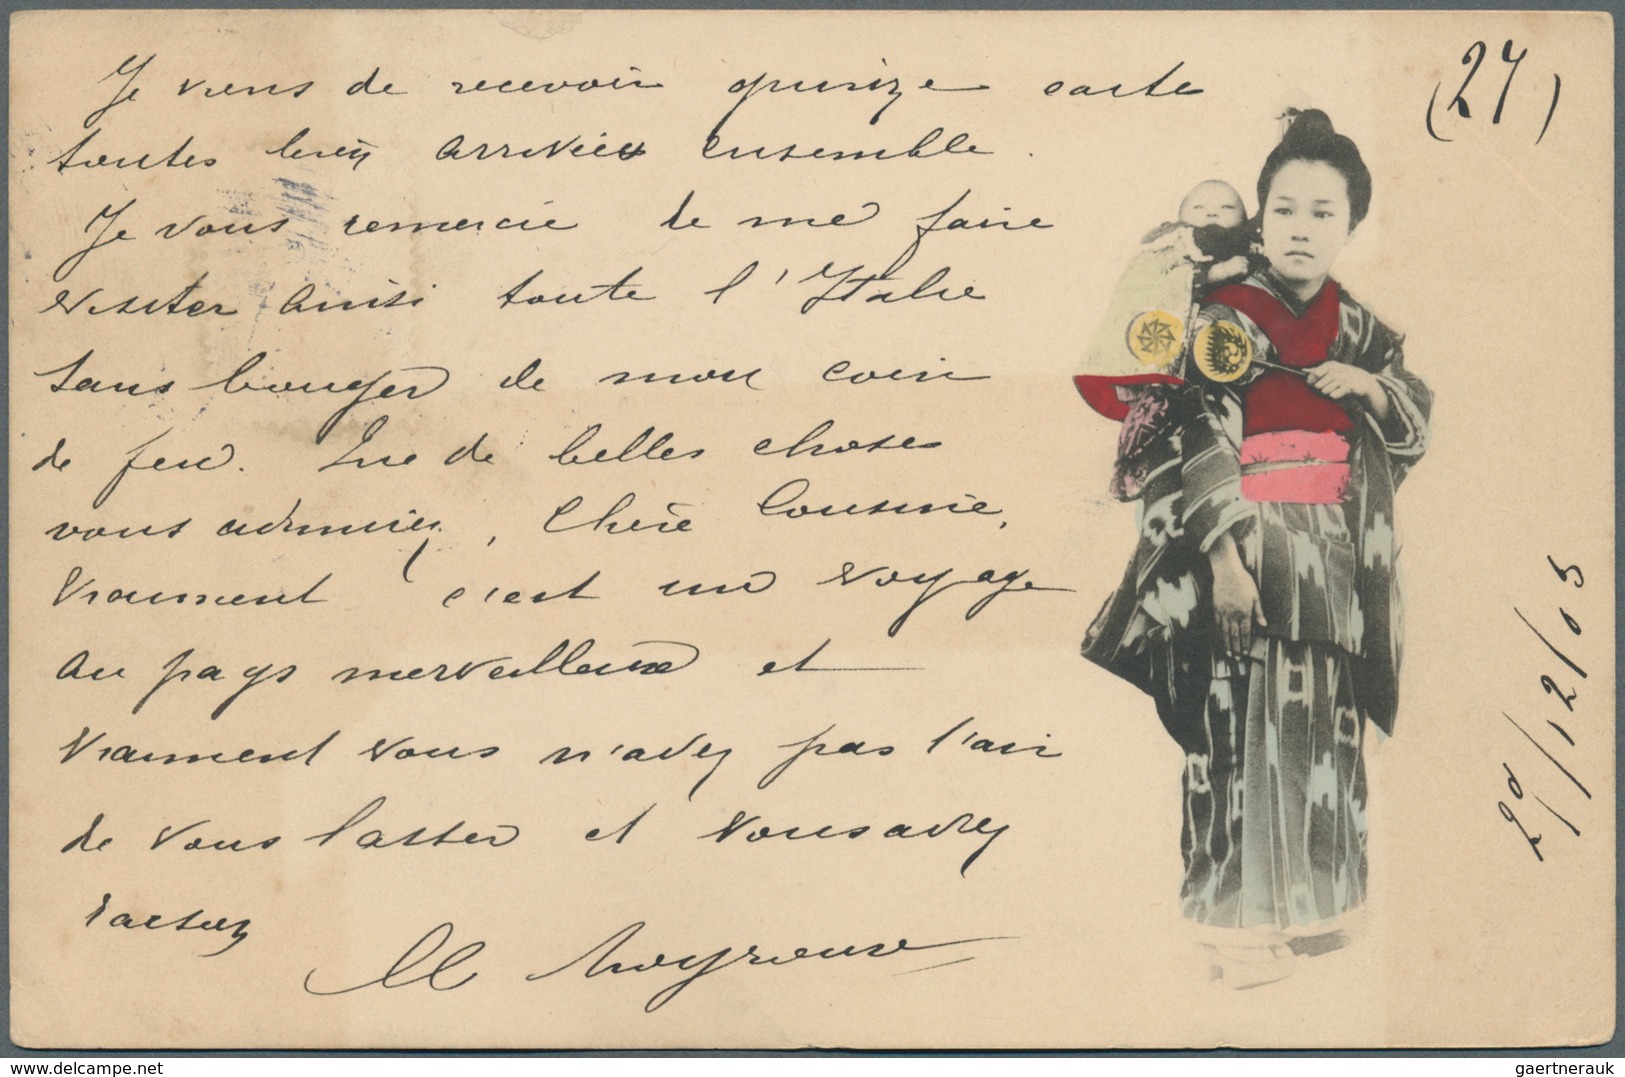 (27)
Je viens de recevoir quinze carte
toutes bien arrivées ensemble.
Je vous remercie de me faire
visiter ainsi toute l'Italie
sans bouger de mon coin
de feu. Que de belles choses
vous admirez, Chère Cousine,
Vraiment c'est un voyage
au pays merveilleux et
vraiment vous n'avez pas l'air
de vous lasser et vous avez
raison
29/12/05
gaertnerauk
www.delcampe.net